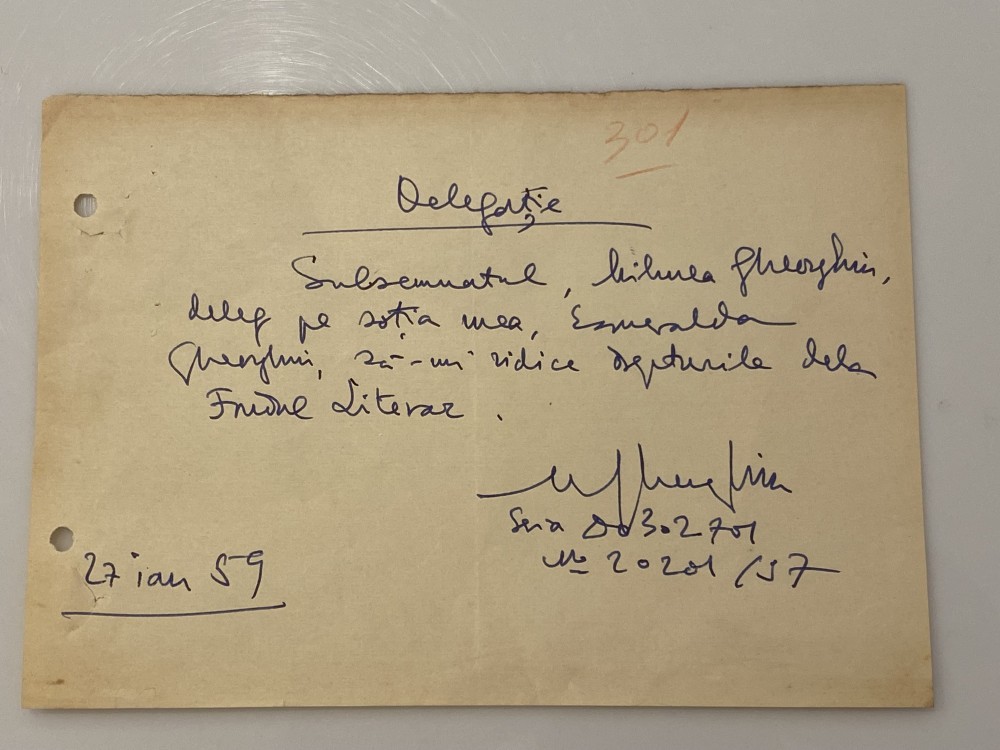 301
Delegație
Subsemnatul, Mihnea Gheorghiu,
deleg pe soția mea, Esmeralda
Gheorghiu, să-mi ridice drepturile dela
Fondul Literar.
MGheorghiu
Seria DO 302701
No 20201/57
27 ian 59